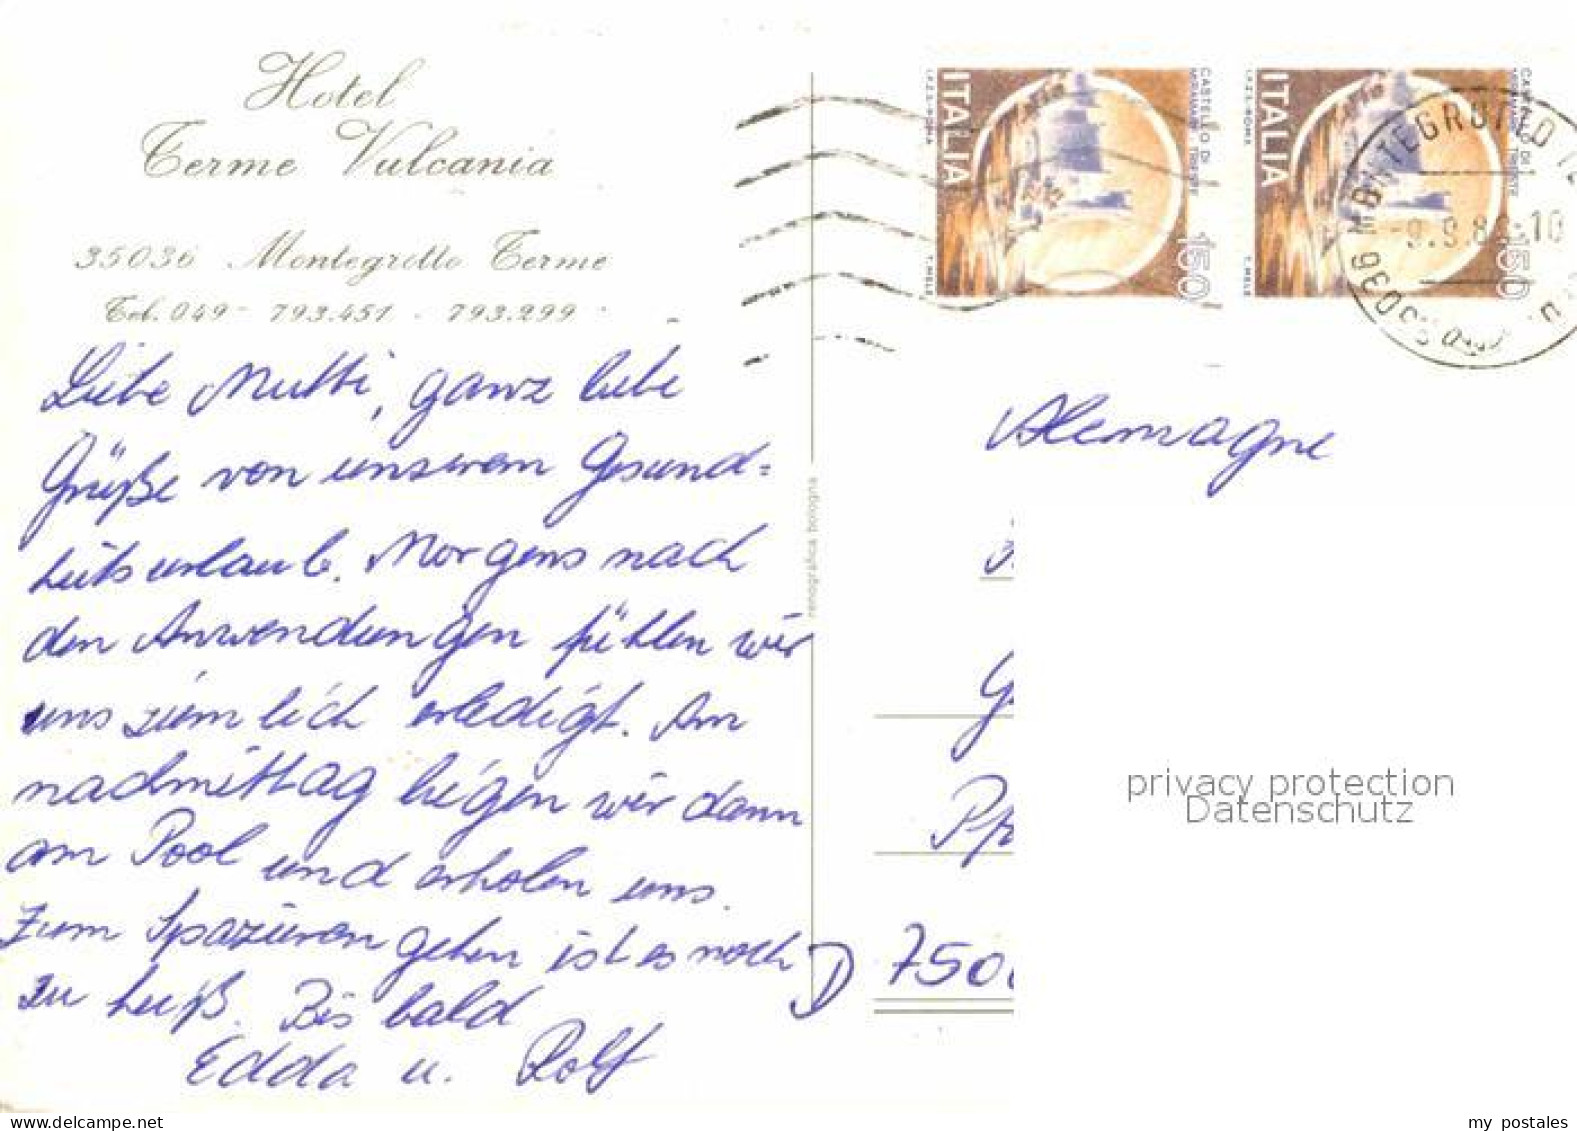 Hotel
Terme Vulcania
35036 Montegrotto Terme
Tel. 049 - 793.451 - 793.299
Liebe Mutti, ganz liebe
Grüße von unserem Gesund=
heitsurlaub. Morgens nach
den Anwendungen fühlen wir
uns ziemlich erledigt. Am
nachmittag liegen wir dann
am Pool und erholen uns.
Zum Spazieren gehen ist es noch
zu heiß. Bis bald
Edda u. Rolf
renografica bologna
I.P.Z.S.-ROMA
ITALIA
CASTELLO DI
MIRAMARE TRIESTE
150
T. MELE
I.P.Z.S.-ROMA
ITALIA
CASTELLO DI
MIRAMARE TRIESTE
150
T. MELE
35036 MONTEGROTTO TE
Alemagne
D 750
privacy protection
Datenschutz
my postales